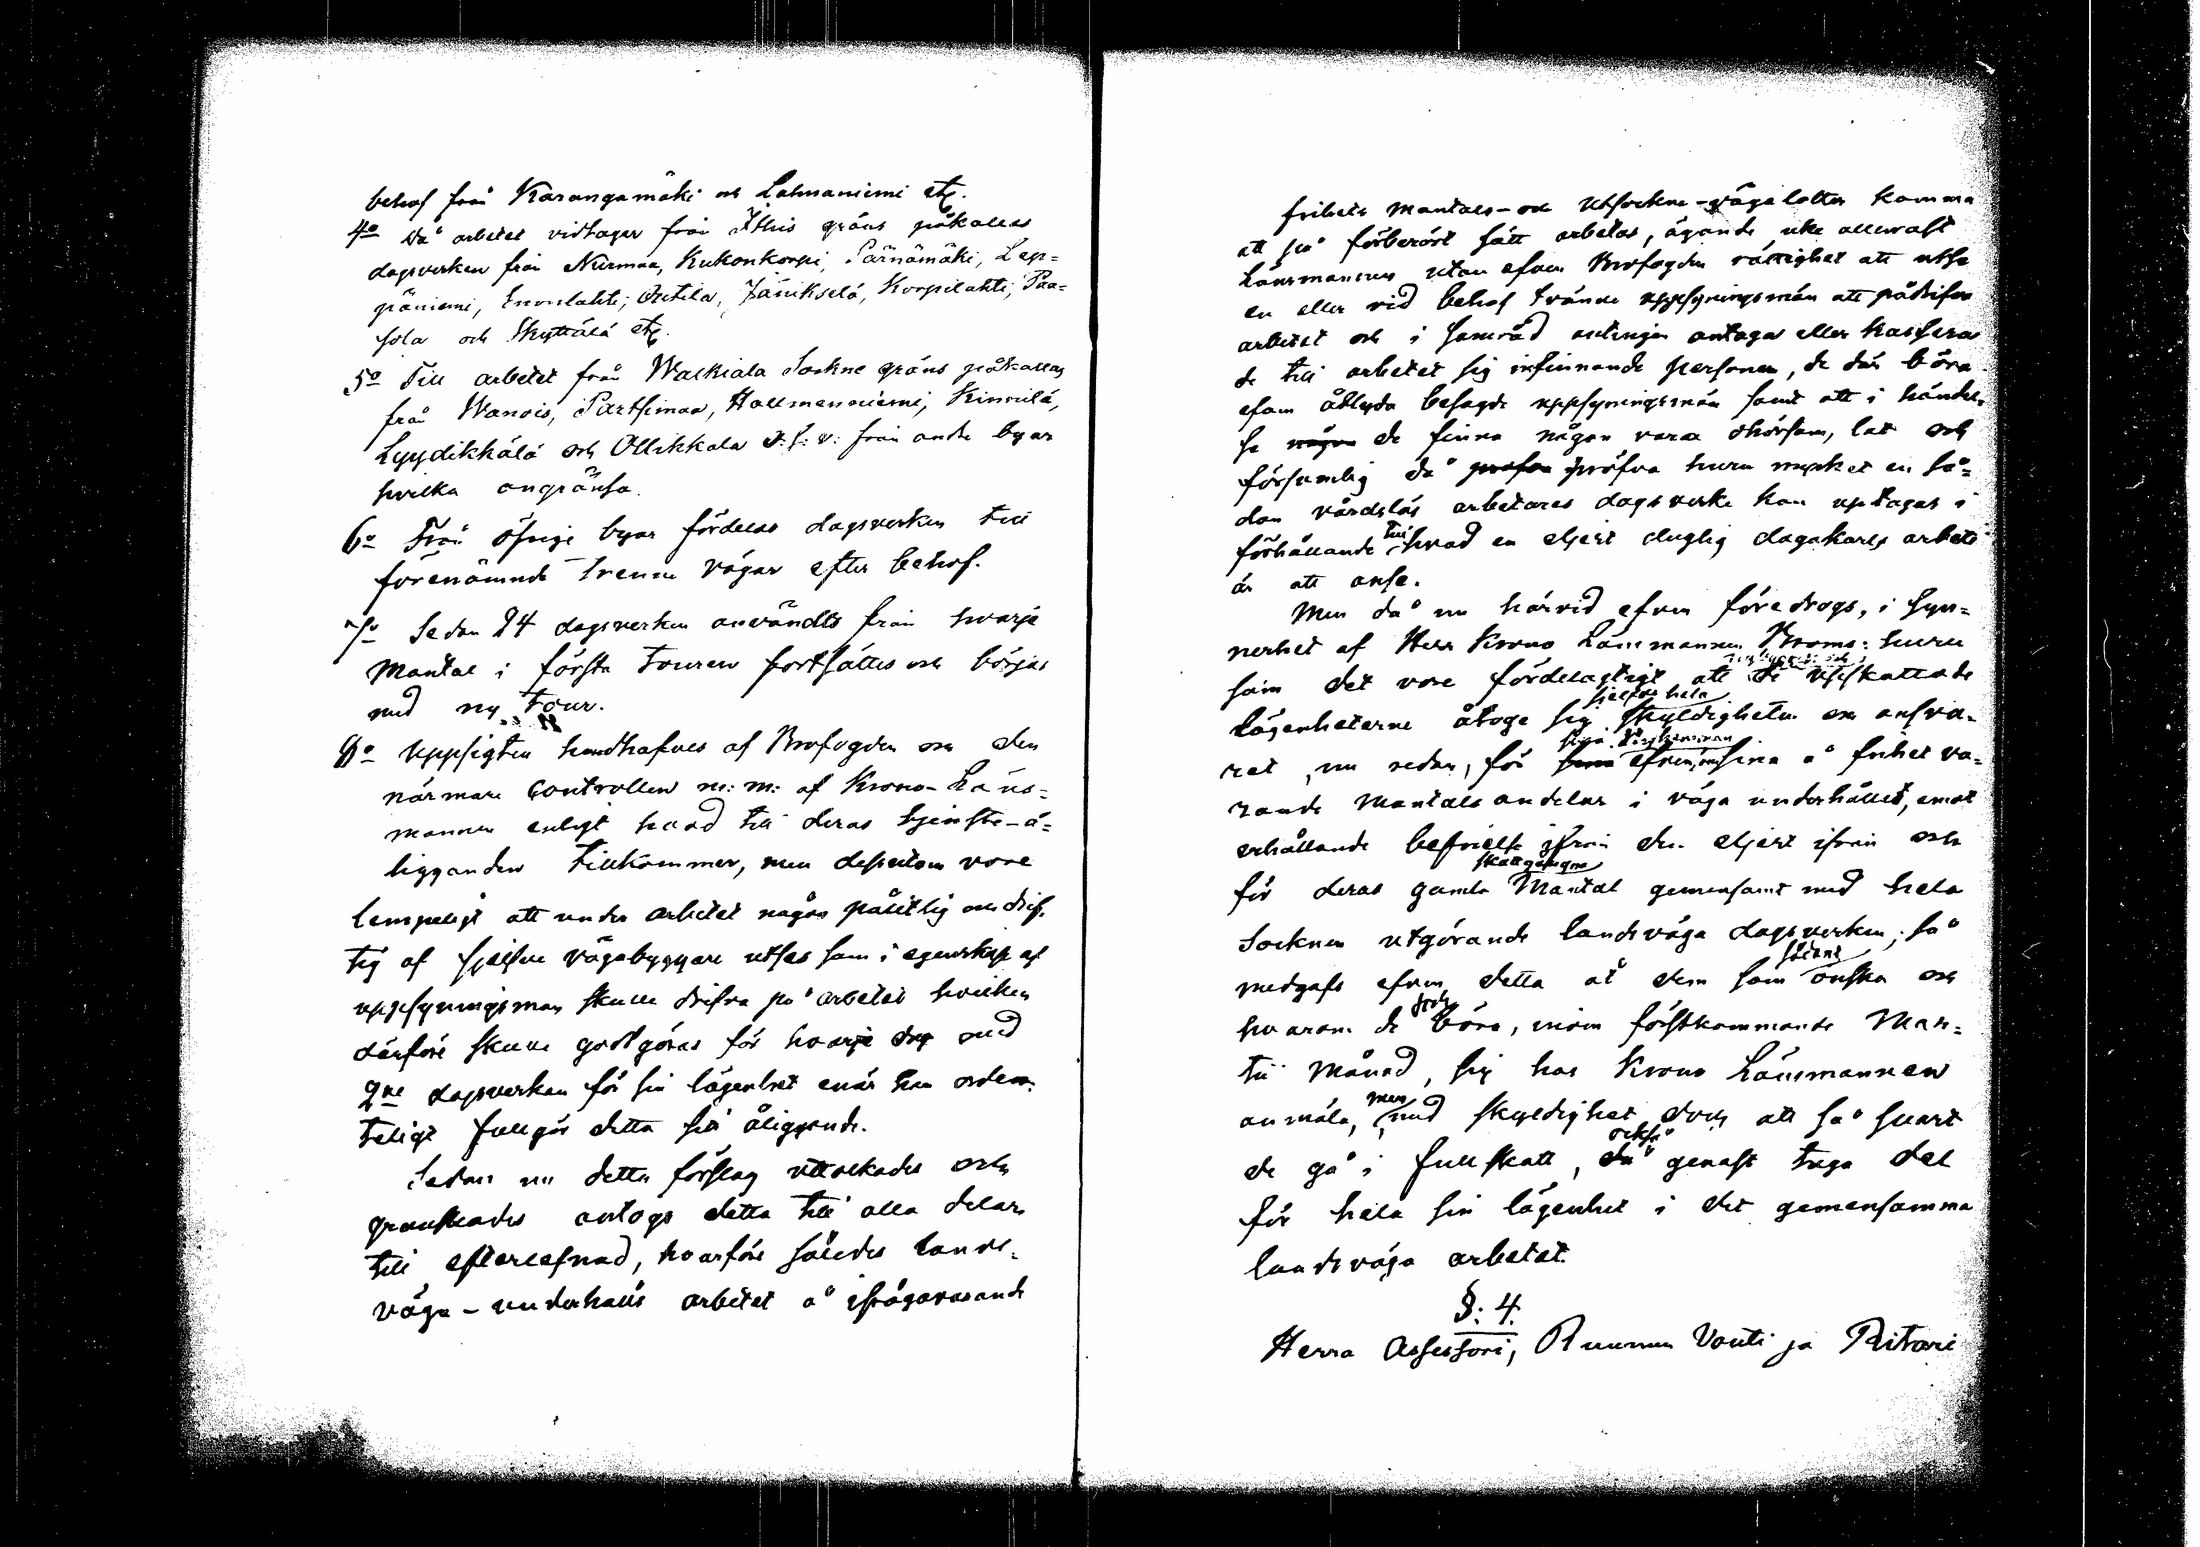 behof från Karangamäki och Lahnaniemi etc.
4o Då arbetet vidtager från Itis gräns påkallas
dagsverken från Nirmaa, Kukonkorpi, Pärnämäki, Lep-
päniemi, Inonlahti, Ortela, Jänikselä, Korpilahti, Paa-
sola och Skyttälä etc.
5o Till arbetet från Walkiala Sockne gräns påkallas
från Wanois, Partsimaa, Hallmanniemi, Kinnilä,
Lyydikkälä och Ollikkala o: s: v: från andra byar
hvilka angränsa.
6o Från öfrige byar fördelas dagsverken till
förenämnde trenne vägar efter behof.
7o Sedan 24 dagsverken användts från hvarje
Mantal i första touren fortsättes och börjas
med ny tour.
8o Uppsigten handhafves af Brofogden och den
närmare Controllen m: m: af Krono-Läns-
mannen enligt hvad till deras tjenste-å-
ligganden tillkommer, men dessutom vore
lempeligt att under arbetet någon pålitlig och drif-
tig af sjelfve vägabyggare utses som i egenskap af
uppsyningsman skulle drifva på arbetet hvilken
därföre skulle godtgöras för hvarje dag med
2ne dagsverken för sin lägenhet enär han orden-
teligt fullgör detta sin åliggande.
Sedan nu detta förslag uttolkades och
granskades antogs detta till alla delar
till efterlefnad, hvarföre således lands-
väga-underhålls arbetet å ifrågavarande
frihets mantals- och utsockne-vägalotter komma
att på förberört sätt arbetas, ägande icke allenast
Länsmannen utan efven Brofogden rättighet att utse
en eller vid behof tvänne uppsyningsmän att pådrifva
arbetet och i samråd antingen antaga eller kassera
de till arbetet sig infinnande personer, de där böra
efven åtlyda besagde uppsyningsmän samt att i händel-
se någon de finna någon vara ohörsam, lat och
försumlig då profva pröfva huru mycket en så-
dan vårdslös arbetares dagsverke kan uptagas i
förhållande till hvad en eljest duglig dagakarls arbete
är att anse.
Men då nu härvid efven föredrogs, i syn-
nerhet af Herr Krono Länsmannen Broms: huru
som det vore fördelagtigt att de uppskattade
lägenheterne åtoge sig sjelfve hela skyldigheten och ansva-
ret, nu redan, för sina efven sina å frihet va-
rande Mantals andelar i väga underhållet, emot
erhållande befrielse ifrån den eljest ifrån och
för deras gamla skattgångne Mantal gemensamt med hela
Socknen utgörande landsväga dagsverken; så
medgafs efven detta åt dem som sådant önska och
hvarom de dock böra, inom förstkommande Mar-
tii Månad, sig hos Krono Länsmannen
anmäla, men med skyldighet dock att så snart
de gå i full skatt, då också genast taga del
för hela sin lägenhet i det gemensamma
landsväga arbetet.
§. 4.
Herra Assessori, Ruunun Vouti ja Ritari